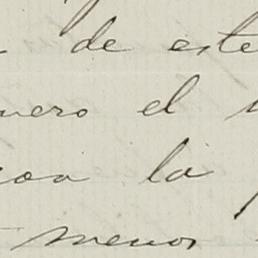 de este
nero el
la
menos